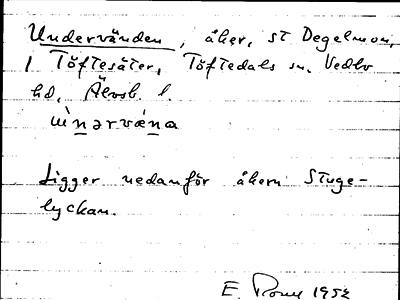 Undervänden, åker, st Degelmon,
1 Töftesäter, Töftedals sn. Vedbo
hd, Älvsb. l.
ùnərvǽna
Ligger nedanför åkern Stuge-
lyckan.
E. 1952